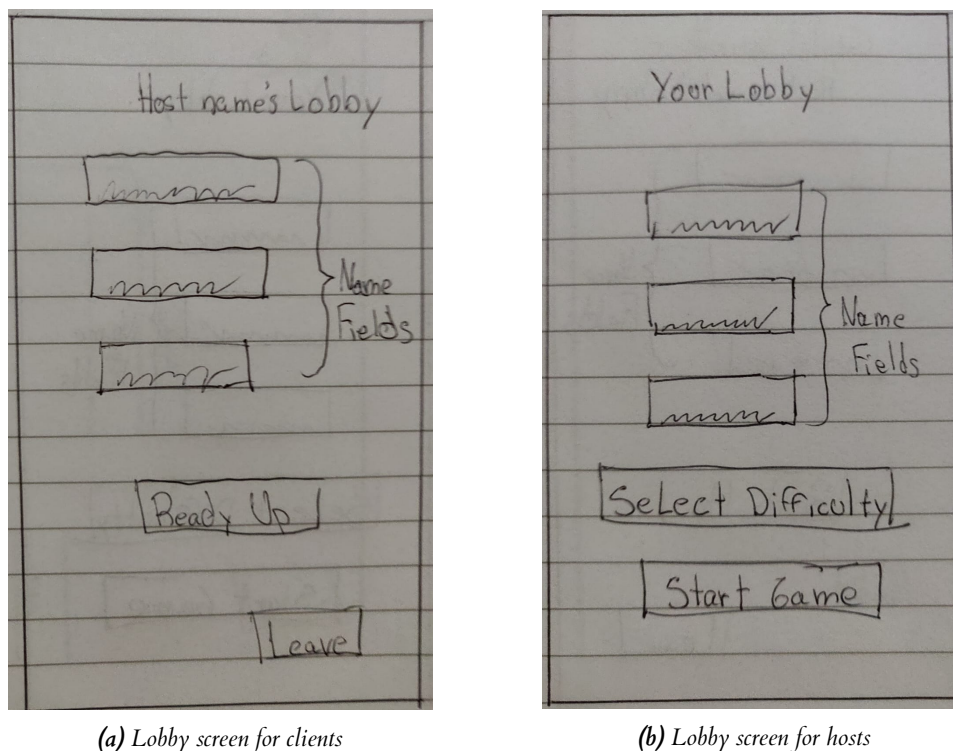 Host name's Lobby
Name
Fields
Ready Up
Leave
(a) Lobby screen for clients
Your Lobby
Name
Fields
Select Difficulty
Start Game
(b) Lobby screen for hosts